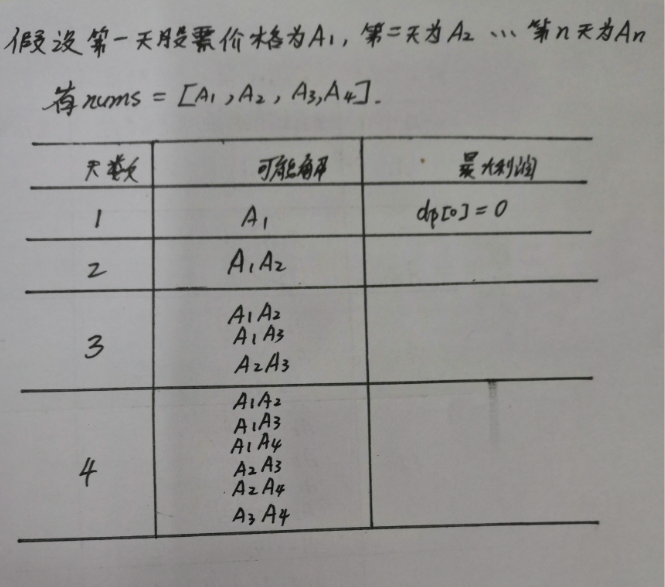 假设第一天股票价格为A1，第二天为A2 … 第n天为An
有nums = [A1, A2, A3, A4].
天数 可能解 最大利润
1 A1 dp[0] = 0
2 A1A2
3
A1A2
A1A3
A2A3
4
A1A2
A1A3
A1A4
A2A3
A2A4
A3A4